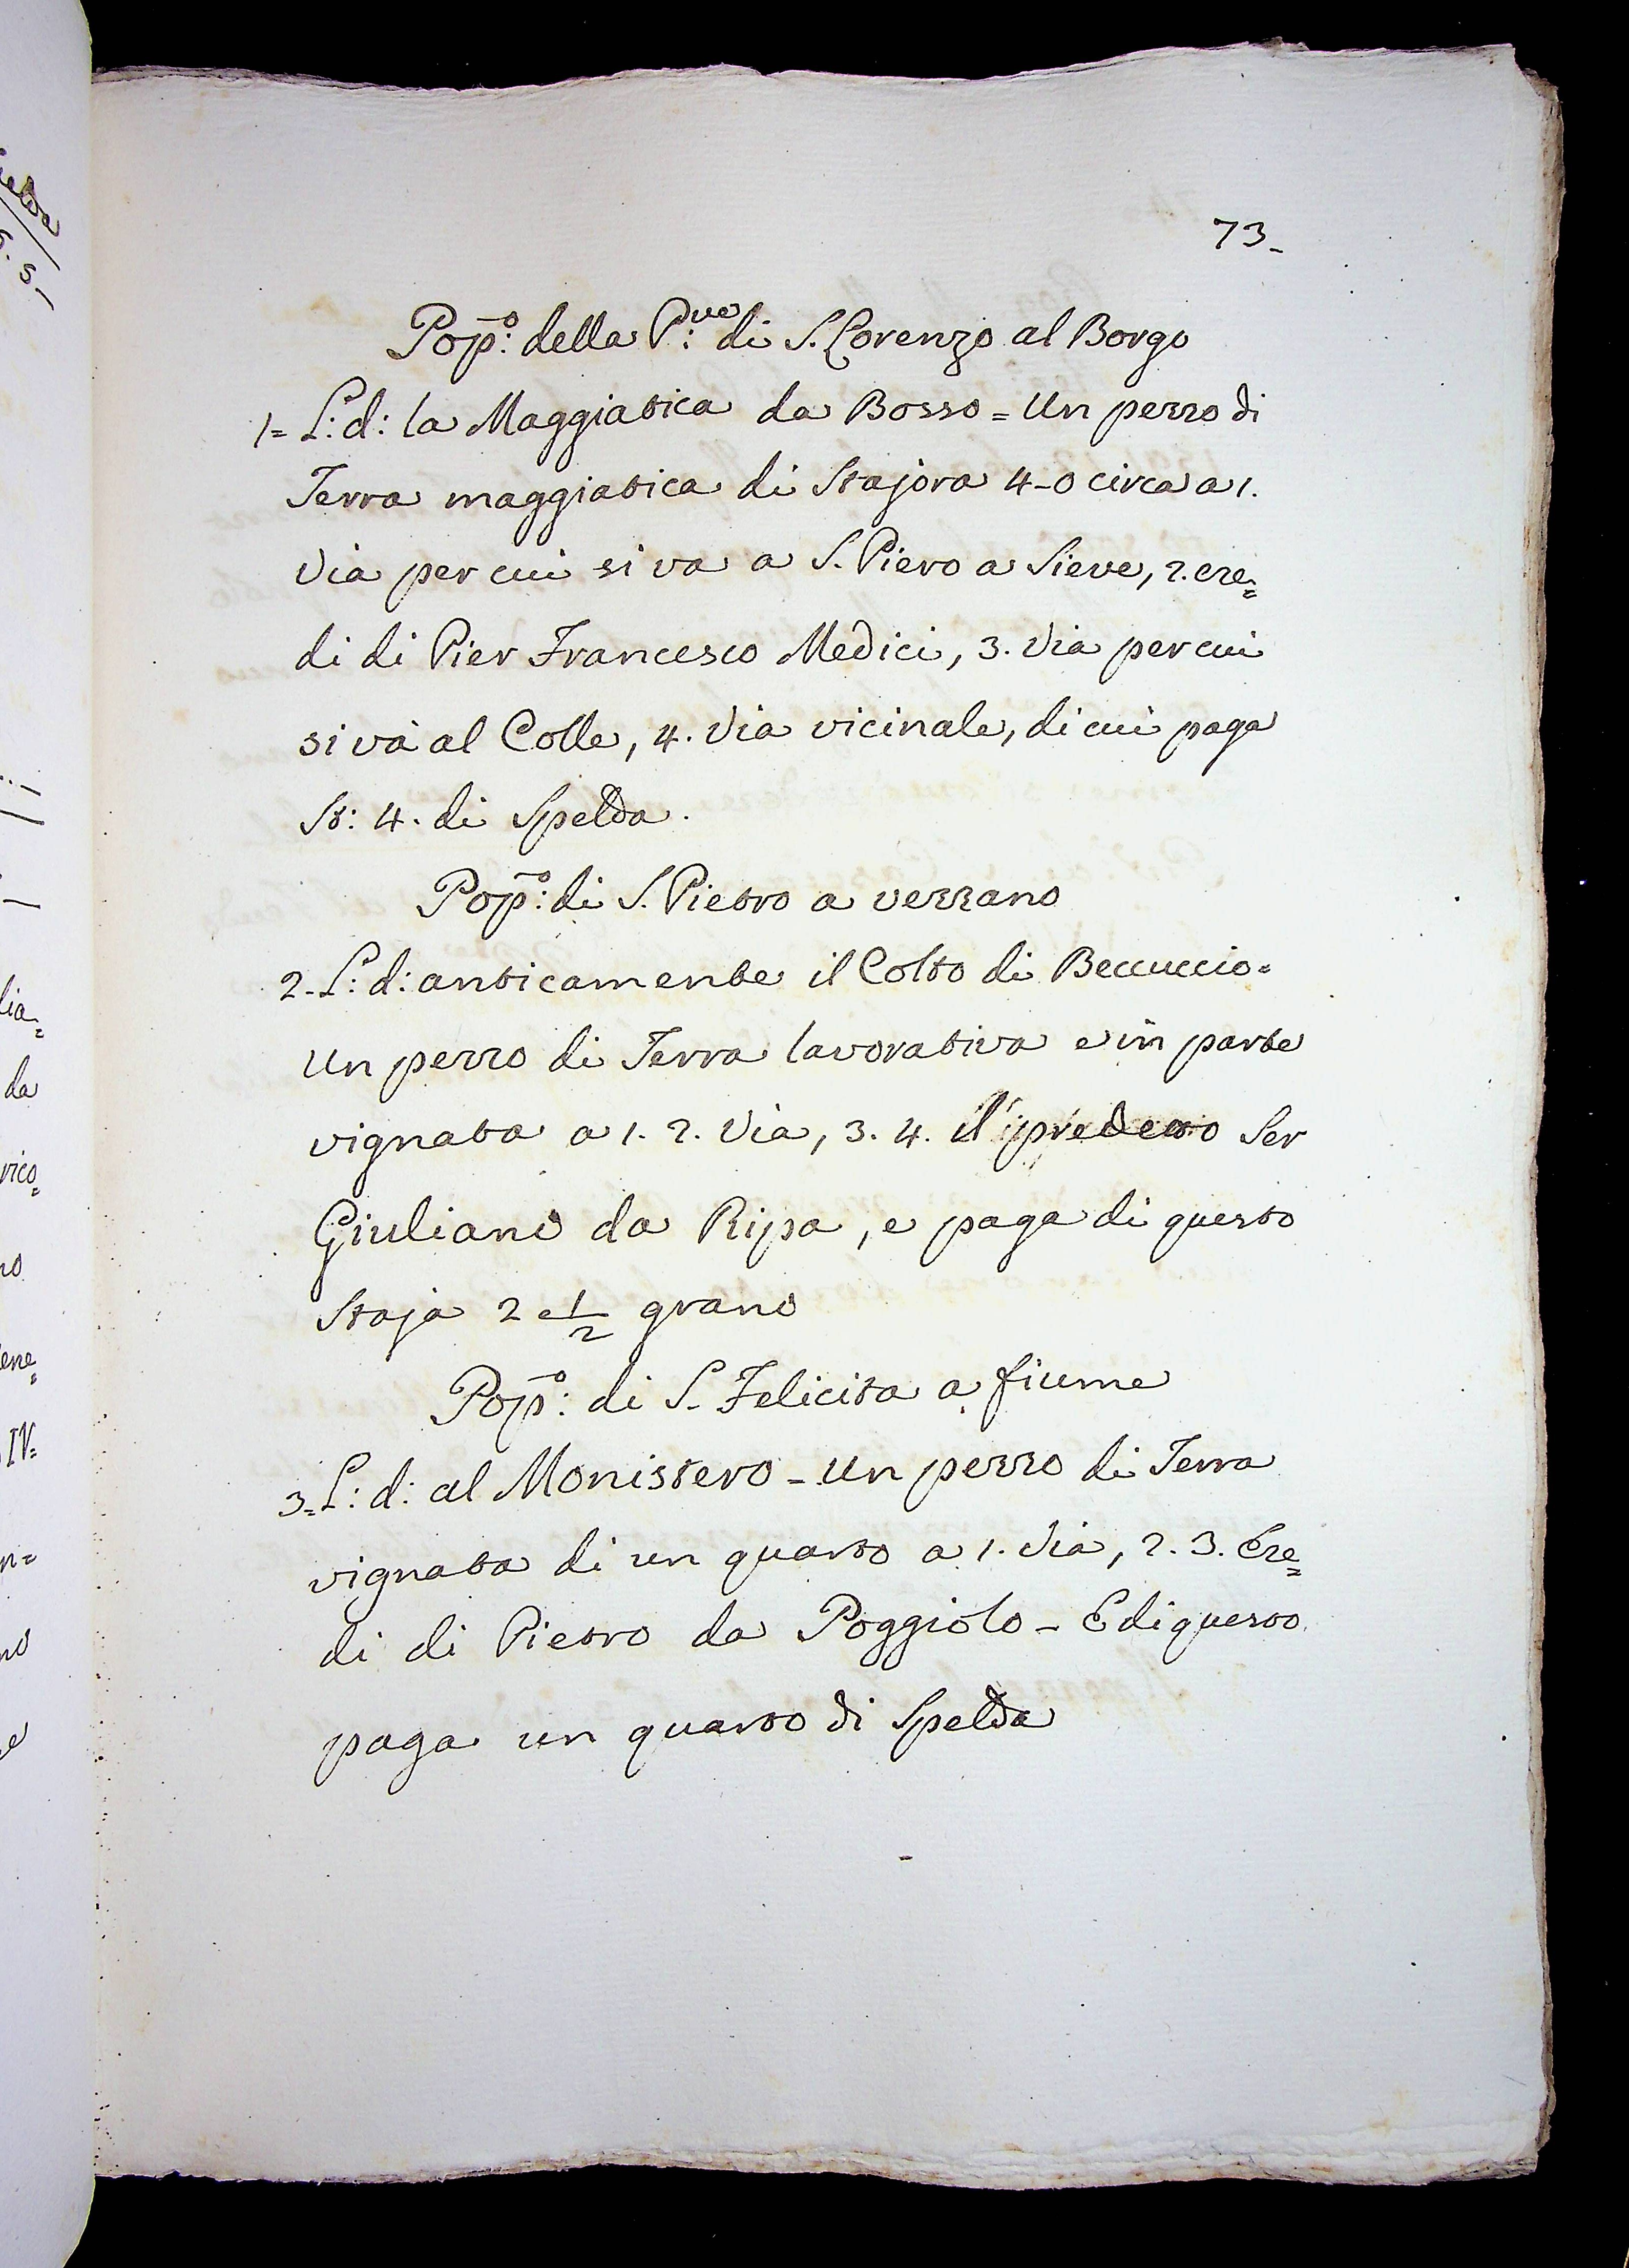 73_
Pop̄:º della P:ve di S. Lorenzo al Borgo
1= L: d: la Maggiatica da Bosso = Un pezzo di
Terra maggiatica di Stajora 4-0 circa a 1.
Via per cui si va a S. Piero a Sieve, 2. ere=
di di Pier Francesco Medici, 3. Via per cui
si và al Colle, 4. Via vicinale, di cui paga
St: 4. di Spelda.
Pop̄:º di S. Pietro a vezzano
2- L: d: anticamente il Colto di Beccuccio=
Un pezzo di Terra lavorativa e in parte
vignata a 1. 2. Via, 3. 4. il predetto Ser
Giuliano da Ripa, e paga di questo
Staja 2 e 1/2 grano
Pop̄:º di S. Felicita a fiume
3- L: d: al Monistero - Un pezzo di Terra
vignata di un quarto a 1. Via, 2. 3. Ere=
di di Pietro da Poggiolo - E di questo
paga un quarto di Spelda